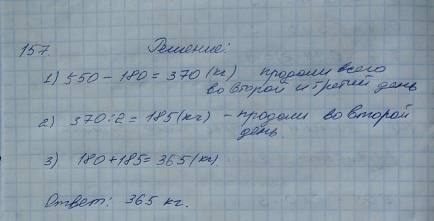 157. Решение:
1) 550 - 180 = 370 (кг) продали всего
во второй и третий день
2) 370:2 = 185 (кг) - продали во второй
день.
3) 180 + 185 = 365 (кг)
Ответ: 365 кг.